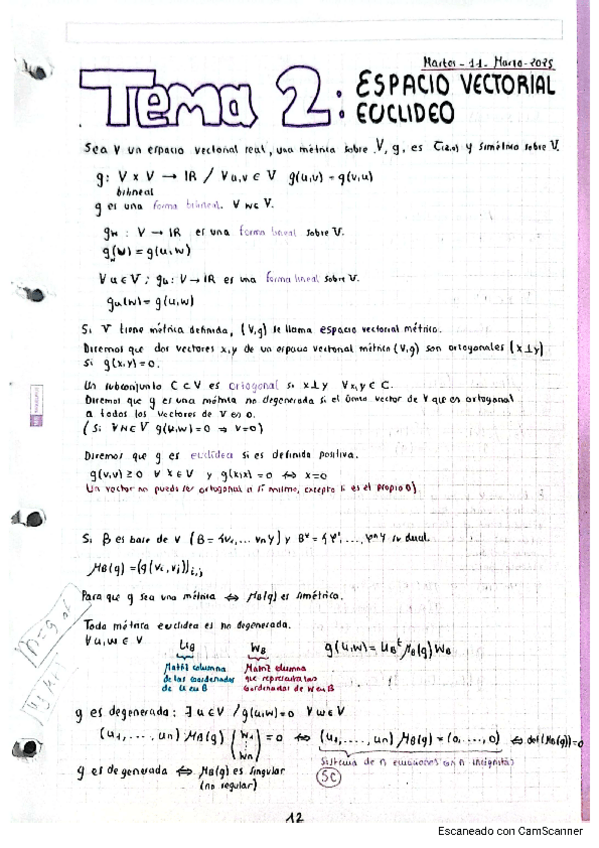 Martes - 11 - Marzo - 2025
Tema 2: ESPACIO VECTORIAL
EUCLIDEO
Sea V un espacio vectorial real, una métrica sobre V, g, es τ(2,0) y simétrico sobre V.
g: V x V → IR / ∀u,v ∈ V g(u,v) = g(v,u)
bilineal
g es una forma bilineal. ∀ w ∈ V.
gw : V → IR es una forma lineal sobre V.
gw(u) = g(u,w)
∀u ∈ V ; gu: V → IR es una forma lineal sobre V.
gu(w) = g(u,w)
Si V tiene métrica definida, (V,g) se llama espacio vectorial métrico.
Diremos que dos vectores x,y de un espacio vectorial métrico (V,g) son ortogonales (x⊥y)
si g(x,y) = 0.
Un subconjunto C ⊂ V es ortogonal si x⊥y ∀x,y ∈ C.
Diremos que g es una métrica no degenerada si el único vector de V que es ortogonal
a todos los vectores de V es 0.
(Si ∀w ∈ V g(v,w) = 0 ⇒ v=0)
Diremos que g es euclídea si es definida positiva.
g(v,v) ≥ 0 ∀ x ∈ V y g(x,x) = 0 ⇔ x=0
Un vector no puede ser ortogonal a sí mismo, excepto si es el propio 0)
Si B es base de V (B = {v1, ... vn} y B* = {φ1, ..., φn} su dual.
MB(g) = (g(vi, vj))i,j
Para que g sea una métrica ⇔ MB(g) es simétrica.
Toda métrica euclídea es no degenerada.
∀u,w ∈ V uB wB g(u,w) = uB^t MB(g) wB
Matriz columna Matriz columna
de las coordenadas que representa las
de u en B coordenadas de w en B
g es degenerada: ∃ u ∈ V / g(u,w) = 0 ∀w ∈ V
(u1, ..., un) MB(g) (w1 ⋮ wn) = 0 ⇔ (u1, ..., un) MB(g) = (0, ..., 0) ⇔ det(MB(g)) = 0
Sistema de n ecuaciones con n incógnitas
g es degenerada ⇔ MB(g) es singular
(no regular)
SC
12
Escaneado con CamScanner